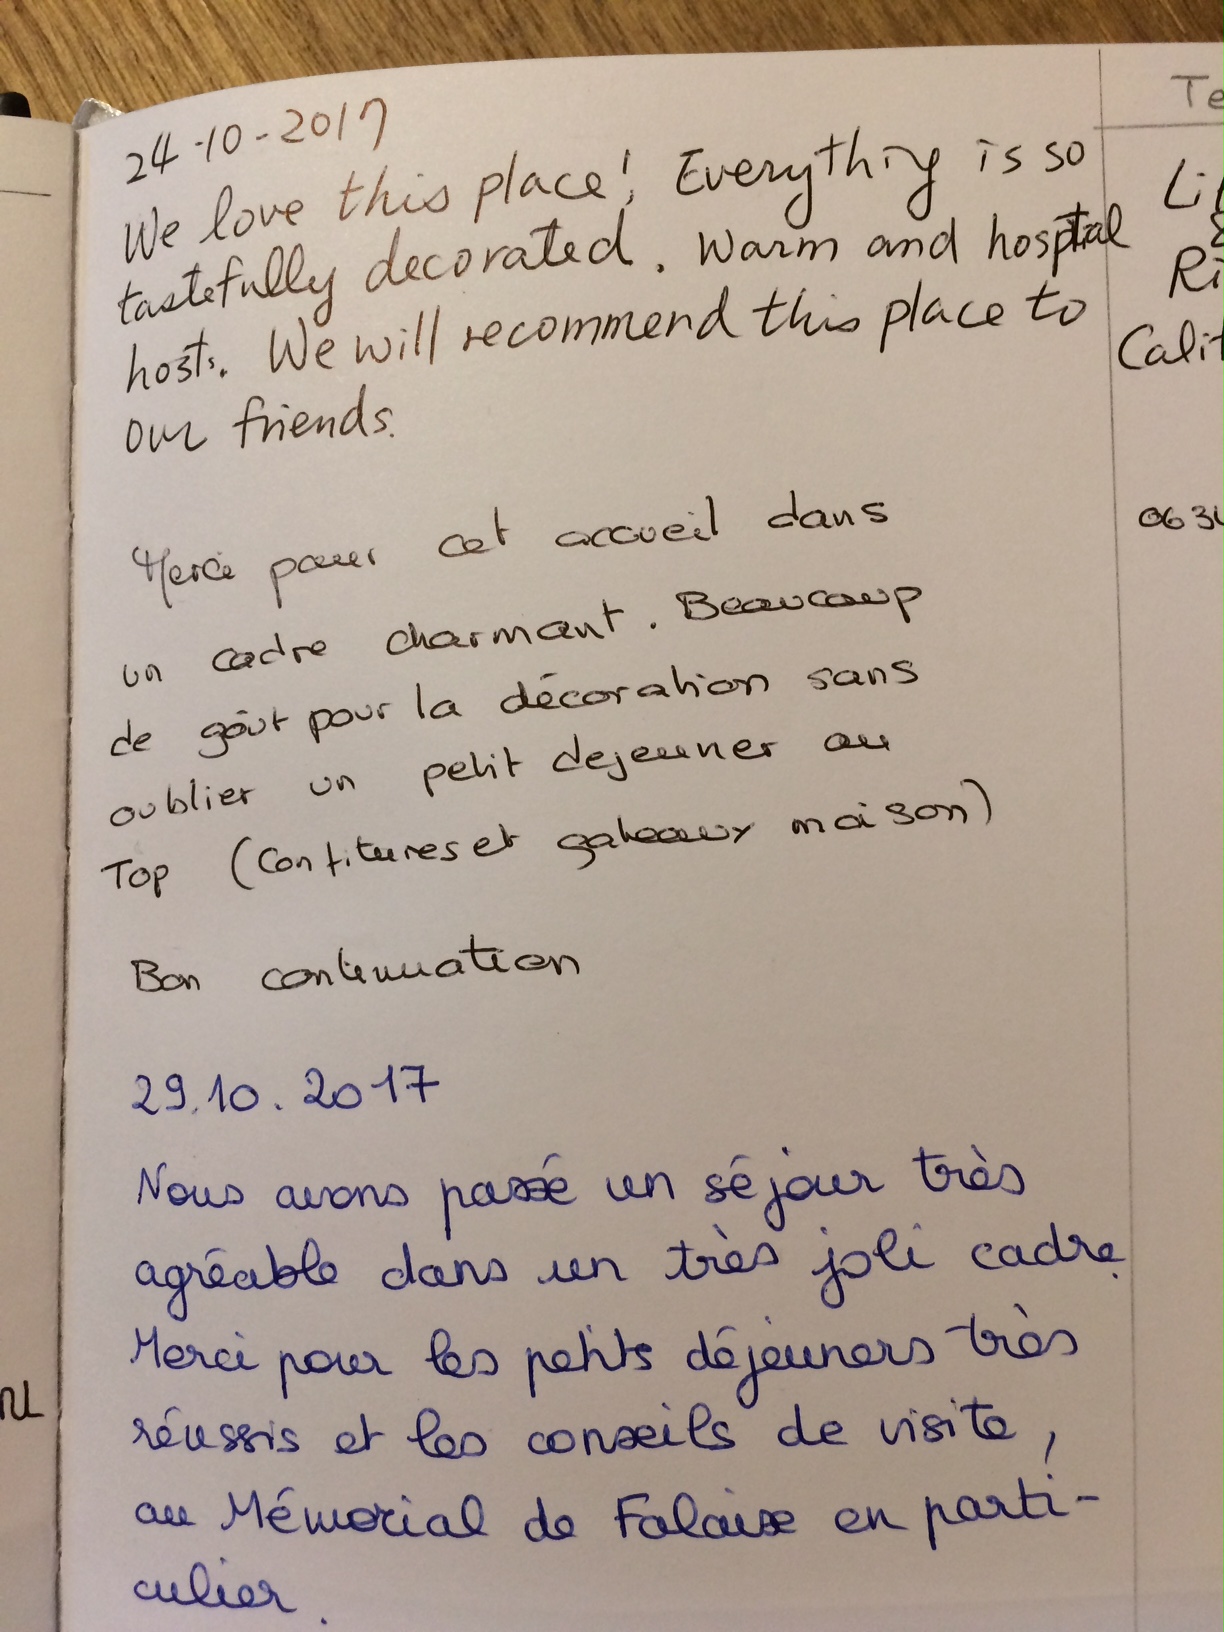 24-10-2017
We love this place! Everything is so
tastefully decorated. Warm and hospital
hosts. We will recommend this place to
our friends.
Merci pour cet accueil dans
un cadre charmant. Beaucoup
de goût pour la décoration sans
oublier un petit dejeuner au
Top (Confitures et gateaux maison)
Bon continuation
29.10.2017
Nous avons passé un séjour très
agréable dans un très joli cadre.
Merci pour les petits déjeuners très
réussis et les conseils de visite,
au Mémorial de Falaise en parti-
culier.
Te
Li
&
Ri
Calif
063